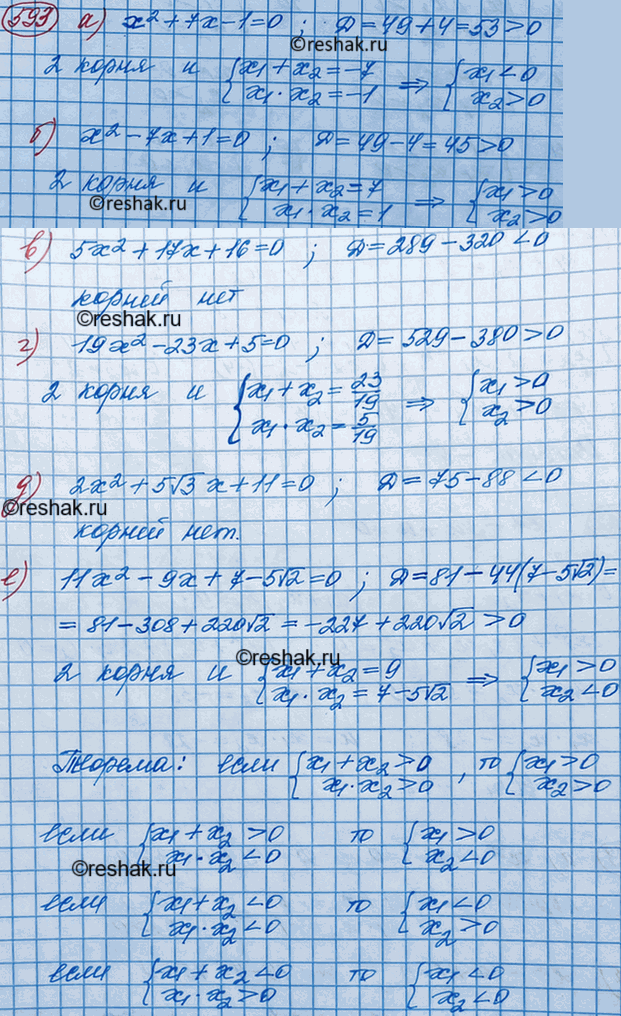 593 а) x² + 7x - 1 = 0 ; Д = 49 + 4 = 53 > 0
©reshak.ru
2 корня и { x₁ + x₂ = -7 ⇒ { x₁ < 0
x₁ · x₂ = -1 x₂ > 0
б) x² - 7x + 1 = 0 ; Д = 49 - 4 = 45 > 0
2 корня и { x₁ + x₂ = 7 ⇒ { x₁ > 0
©reshak.ru
x₁ · x₂ = 1 x₂ > 0
в) 5x² + 17x + 16 = 0 ; Д = 289 - 320 < 0
корней нет
©reshak.ru
г) 19x² - 23x + 5 = 0 ; Д = 529 - 380 > 0
2 корня и { x₁ + x₂ = 23/19 ⇒ { x₁ > 0
x₁ · x₂ = 5/19 x₂ > 0
д) 2x² + 5√3 x + 11 = 0 ; Д = 75 - 88 < 0
©reshak.ru
корней нет.
е) 11x² - 9x + 7 - 5√2 = 0 ; Д = 81 - 44(7 - 5√2) =
= 81 - 308 + 220√2 = -227 + 220√2 > 0
©reshak.ru
2 корня и { x₁ + x₂ = 9 ⇒ { x₁ > 0
x₁ · x₂ = 7 - 5√2 x₂ < 0
Теорема: если { x₁ + x₂ > 0 , то { x₁ > 0
x₁ · x₂ > 0 x₂ > 0
если { x₁ + x₂ > 0 то { x₁ > 0
x₁ · x₂ < 0 x₂ < 0
©reshak.ru
если { x₁ + x₂ < 0 то { x₁ < 0
x₁ · x₂ < 0 x₂ > 0
если { x₁ + x₂ < 0 то { x₁ < 0
x₁ · x₂ > 0 x₂ < 0